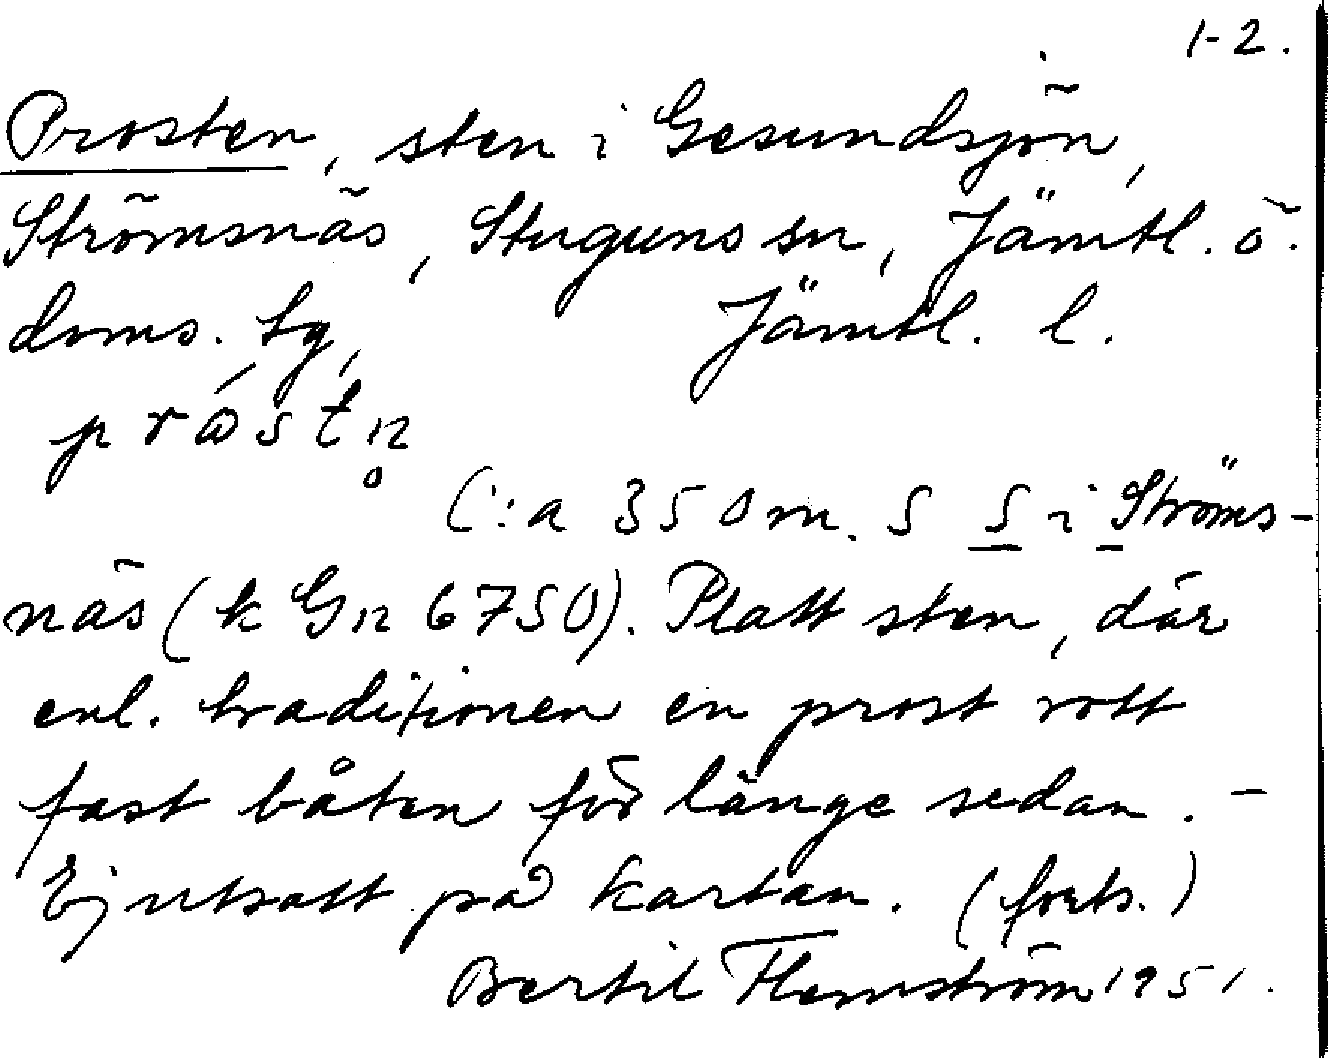 1-2.
Prosten, sten i Gesundsjön,
Strömsnäs, Stuguns sn, Jämtl. ö.
doms. tg, Jämtl. l.
C:a 350 m. S S i Ströms-
näs (k Gn 6750). Platt sten, där
enl. traditionen en prost rott
fast båten för länge sedan. –
Ej utsatt på kartan. (forts.)
Bertil Flemström 1951.